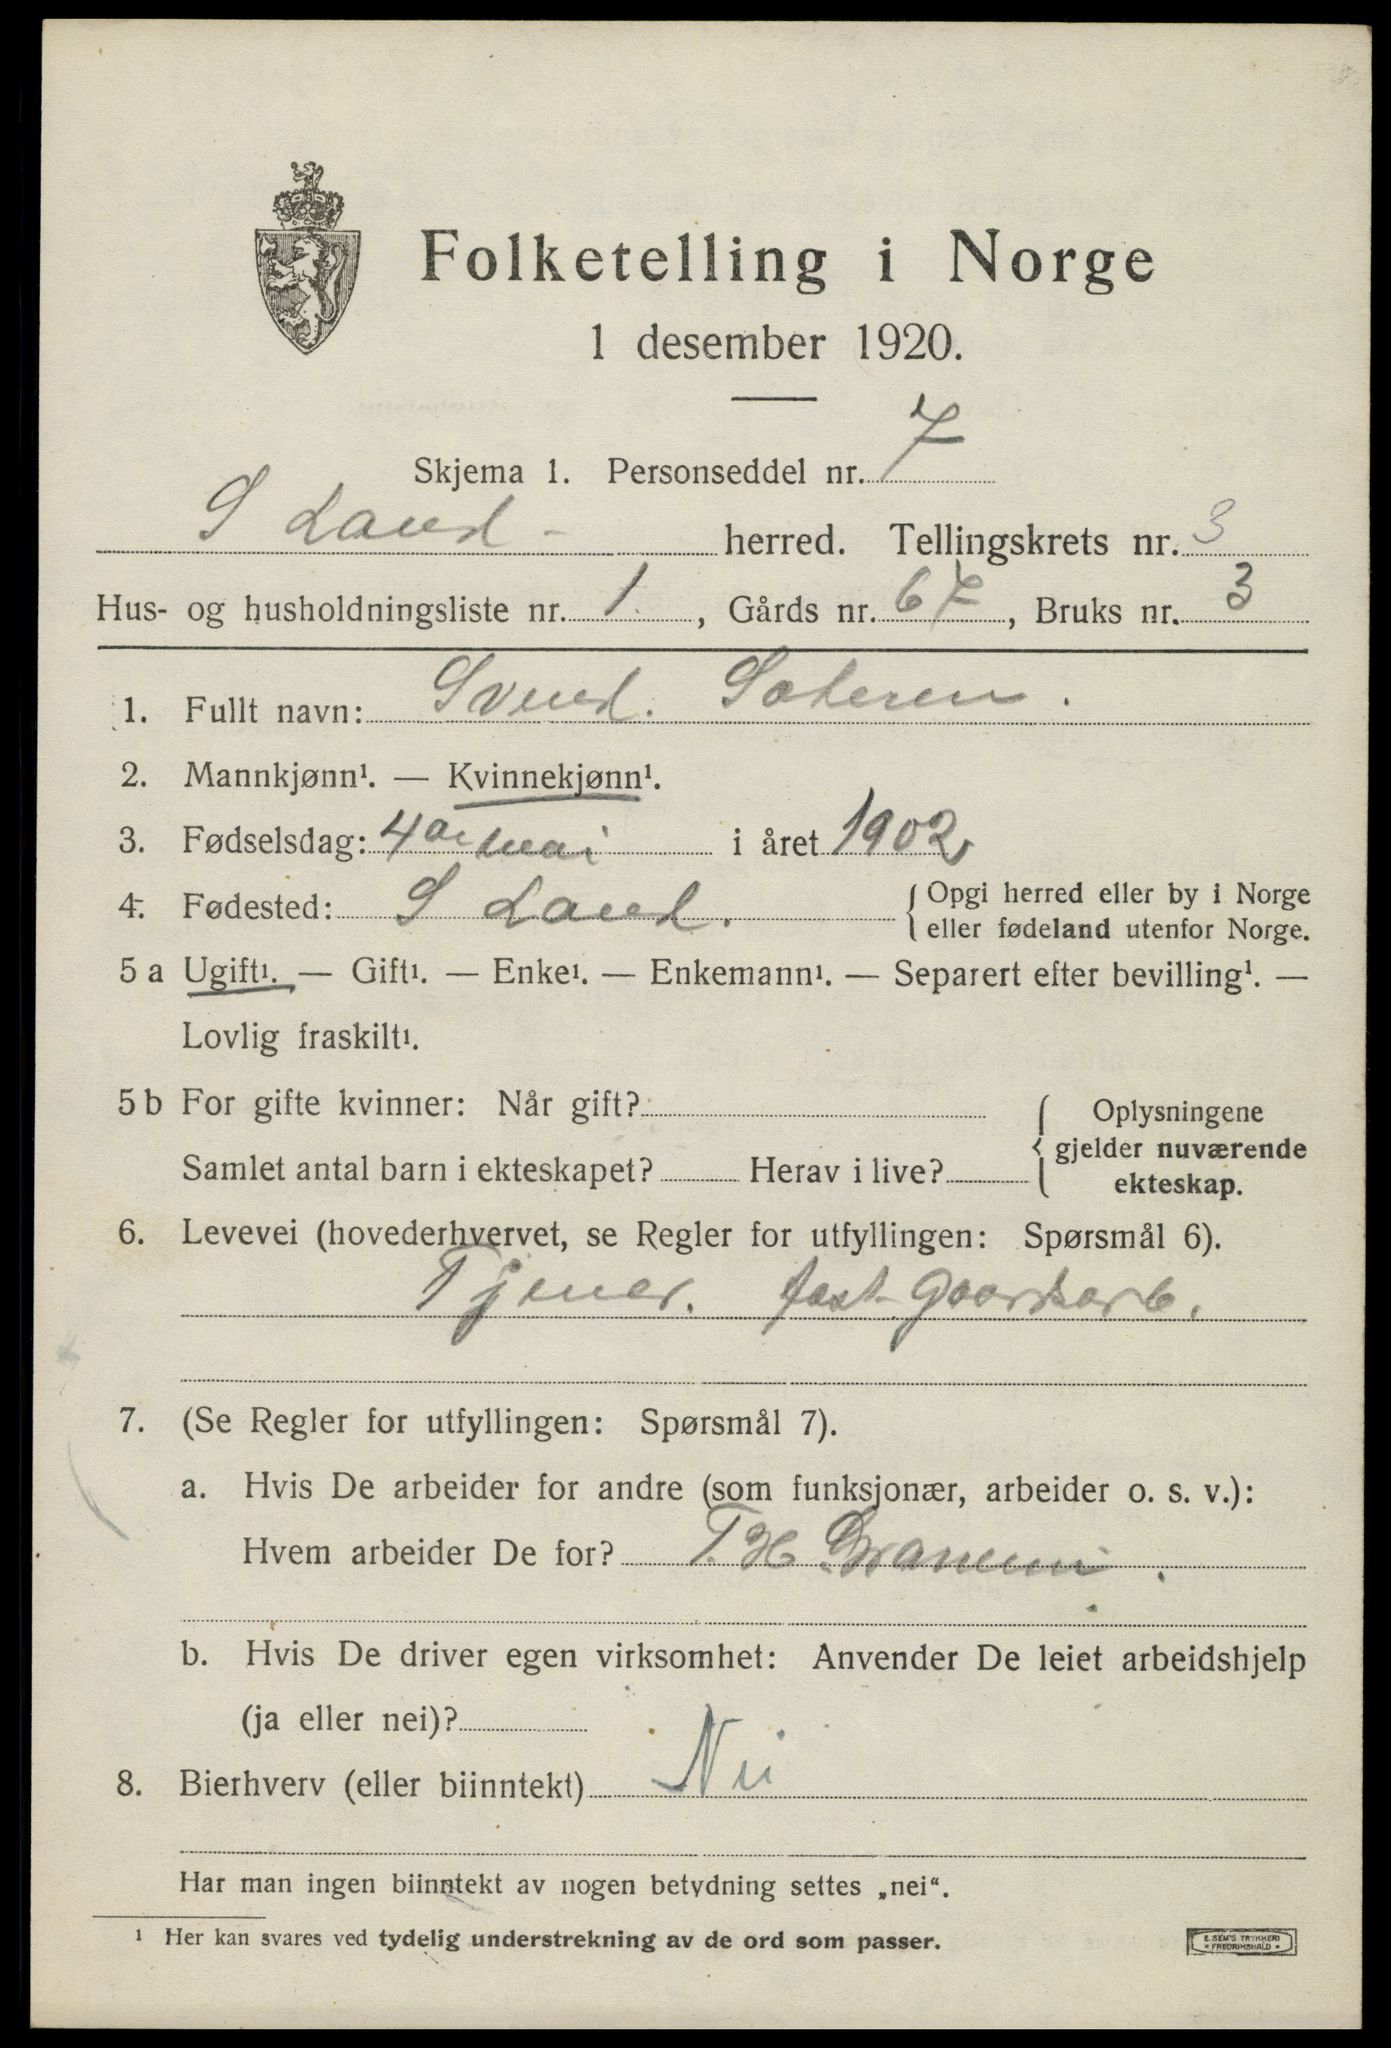 Folketelling i Norge
1 desember 1920.
Skjema 1. Personseddel nr. 7
S Land - herred. Tellingskrets nr. 3
Hus- og husholdningsliste nr. 1, Gårds nr. 67, Bruks nr. 3
1. Fullt navn: Svend.
2. Mannkjønn¹. — Kvinnekjønn¹.
3. Fødselsdag: 4de mai i året 1902
4. Fødested: S Land. { Opgi herred eller by i Norge
eller fødeland utenfor Norge.
5 a Ugift¹. — Gift¹. — Enke¹. — Enkemann¹. — Separert efter bevilling¹. —
Lovlig fraskilt¹.
5 b For gifte kvinner: Når gift?
Samlet antal barn i ekteskapet? Herav i live?
{ Oplysningene
gjelder nuværende
ekteskap.
6. Levevei (hovederhvervet, se Regler for utfyllingen: Spørsmål 6).
Tjener. fast Gaardsarb.
7. (Se Regler for utfyllingen: Spørsmål 7).
a. Hvis De arbeider for andre (som funksjonær, arbeider o. s. v.):
Hvem arbeider De for? T. H.
b. Hvis De driver egen virksomhet: Anvender De leiet arbeidshjelp
(ja eller nei)?
8. Bierhverv (eller biinntekt) Nei
Har man ingen biinntekt av nogen betydning settes „nei“.
¹ Her kan svares ved tydelig understrekning av de ord som passer.
E. SEM'S TRYKKERI
* FREDRIKSHALD *